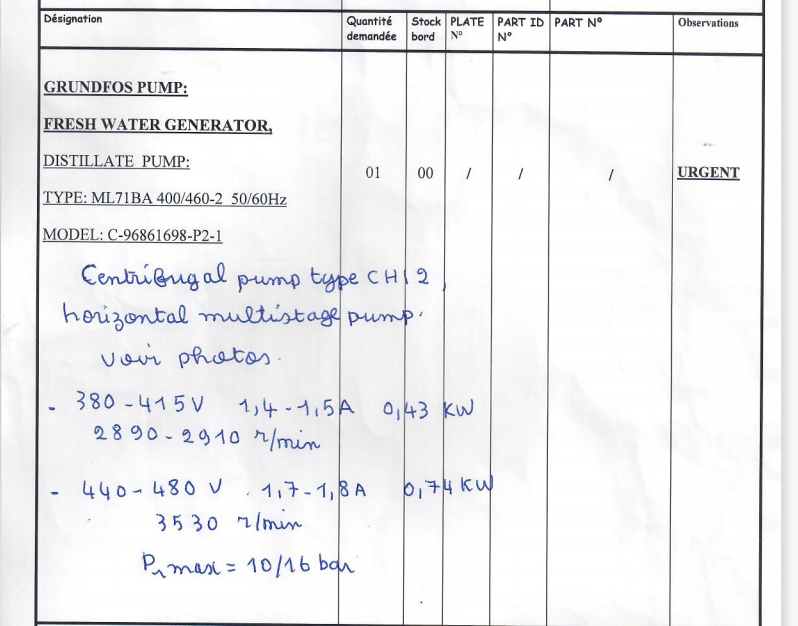 Désignation
Quantité demandée
Stock bord
PLATE N°
PART ID N°
PART N°
Observations
GRUNDFOS PUMP:
FRESH WATER GENERATOR,
DISTILLATE PUMP:
01 00 / / / URGENT
TYPE: ML71BA 400/460-2 50/60Hz
MODEL: C-96861698-P2-1
Centrifugal pump type CHI 2,
horizontal multistage pump.
voir photos.
- 380-415V 1,4-1,5A 0,43 KW
2890-2910 r/min
- 440-480 V 1,7-1,8A 0,74 KW
3530 r/min
max = 10/16 bar